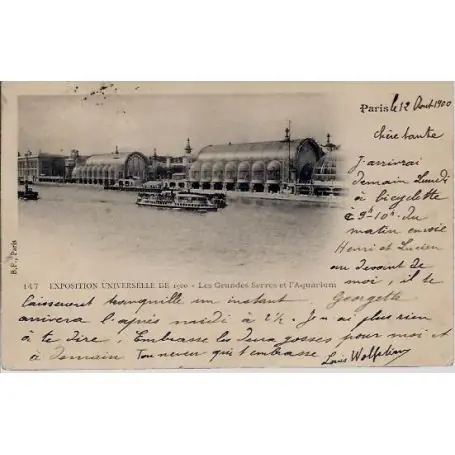 Paris le 12 Août 1900
Chère tante
J'arriverai
demain Lundi
à bicyclette
à 9h 10m du
matin envoie
Henri et Lucien
au devant de
moi, il te
B.F., Paris
147 EXPOSITION UNIVERSELLE DE 1900 - Les Grandes Serres et l'Aquarium
laisseront tranquille un instant Georgette
arrivera l'après midi à 2 ½. Je n'ai plus rien
à te dire, Embrasse les deux gosses pour moi et
à demain Ton neveu qui t'embrasse
Louis